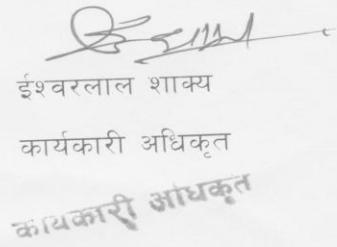 ईश्वरलाल शाक्य
कार्यकारी अधिकृत
कार्यकारी अधिकृत